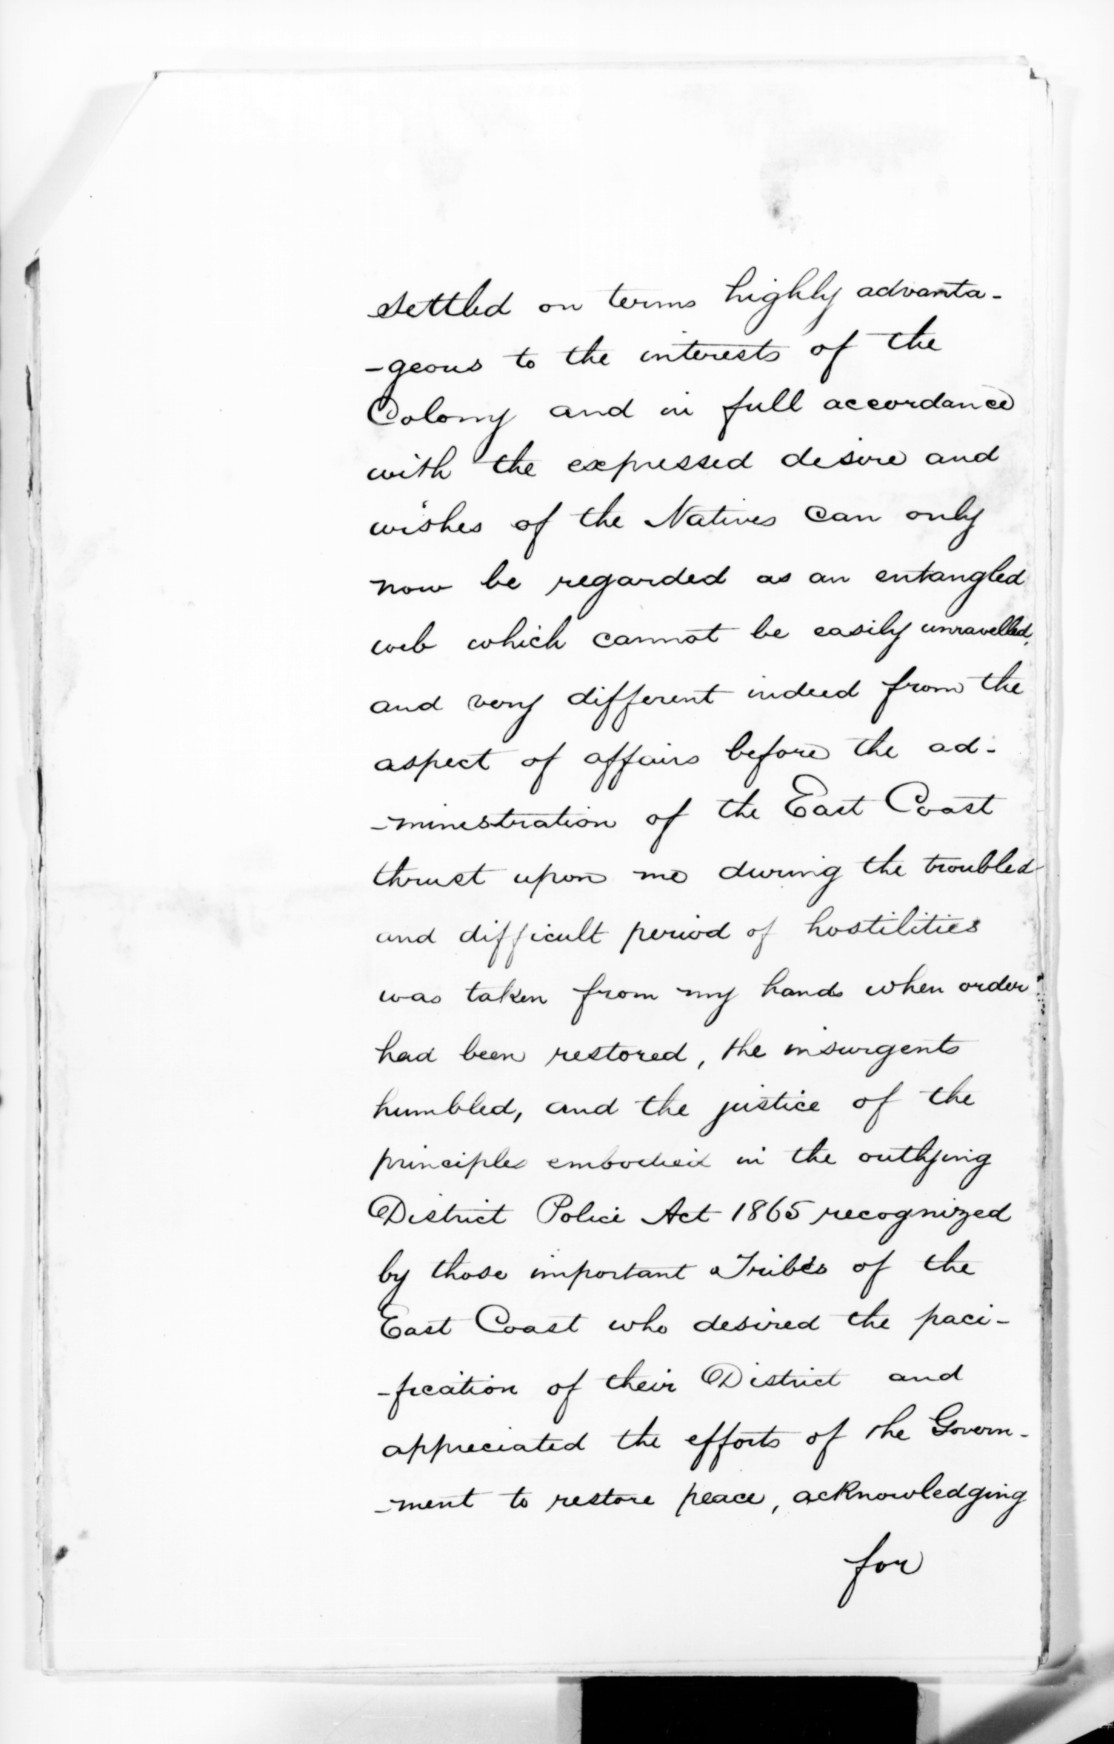 settled on terms highly advanta-
-geous to the interests of the
Colony and in full accordance
with the expressed desire and
wishes of the Natives can only
now be regarded as an entangled
web which cannot be easily unravelled,
and very different indeed from the
aspect of affairs before the ad-
-ministration of the East Coast
thrust upon me during the troubled
and difficult period of hostilities
was taken from my hands when order
had been restored, the insurgents
humbled, and the justice of the
principles embodied in the outlying
District Police Act 1865 recognized
by those important Tribes of the
East Coast who desired the paci-
-fication of their District and
appreciated the efforts of the Govern-
-ment to restore peace, acknowledging
for